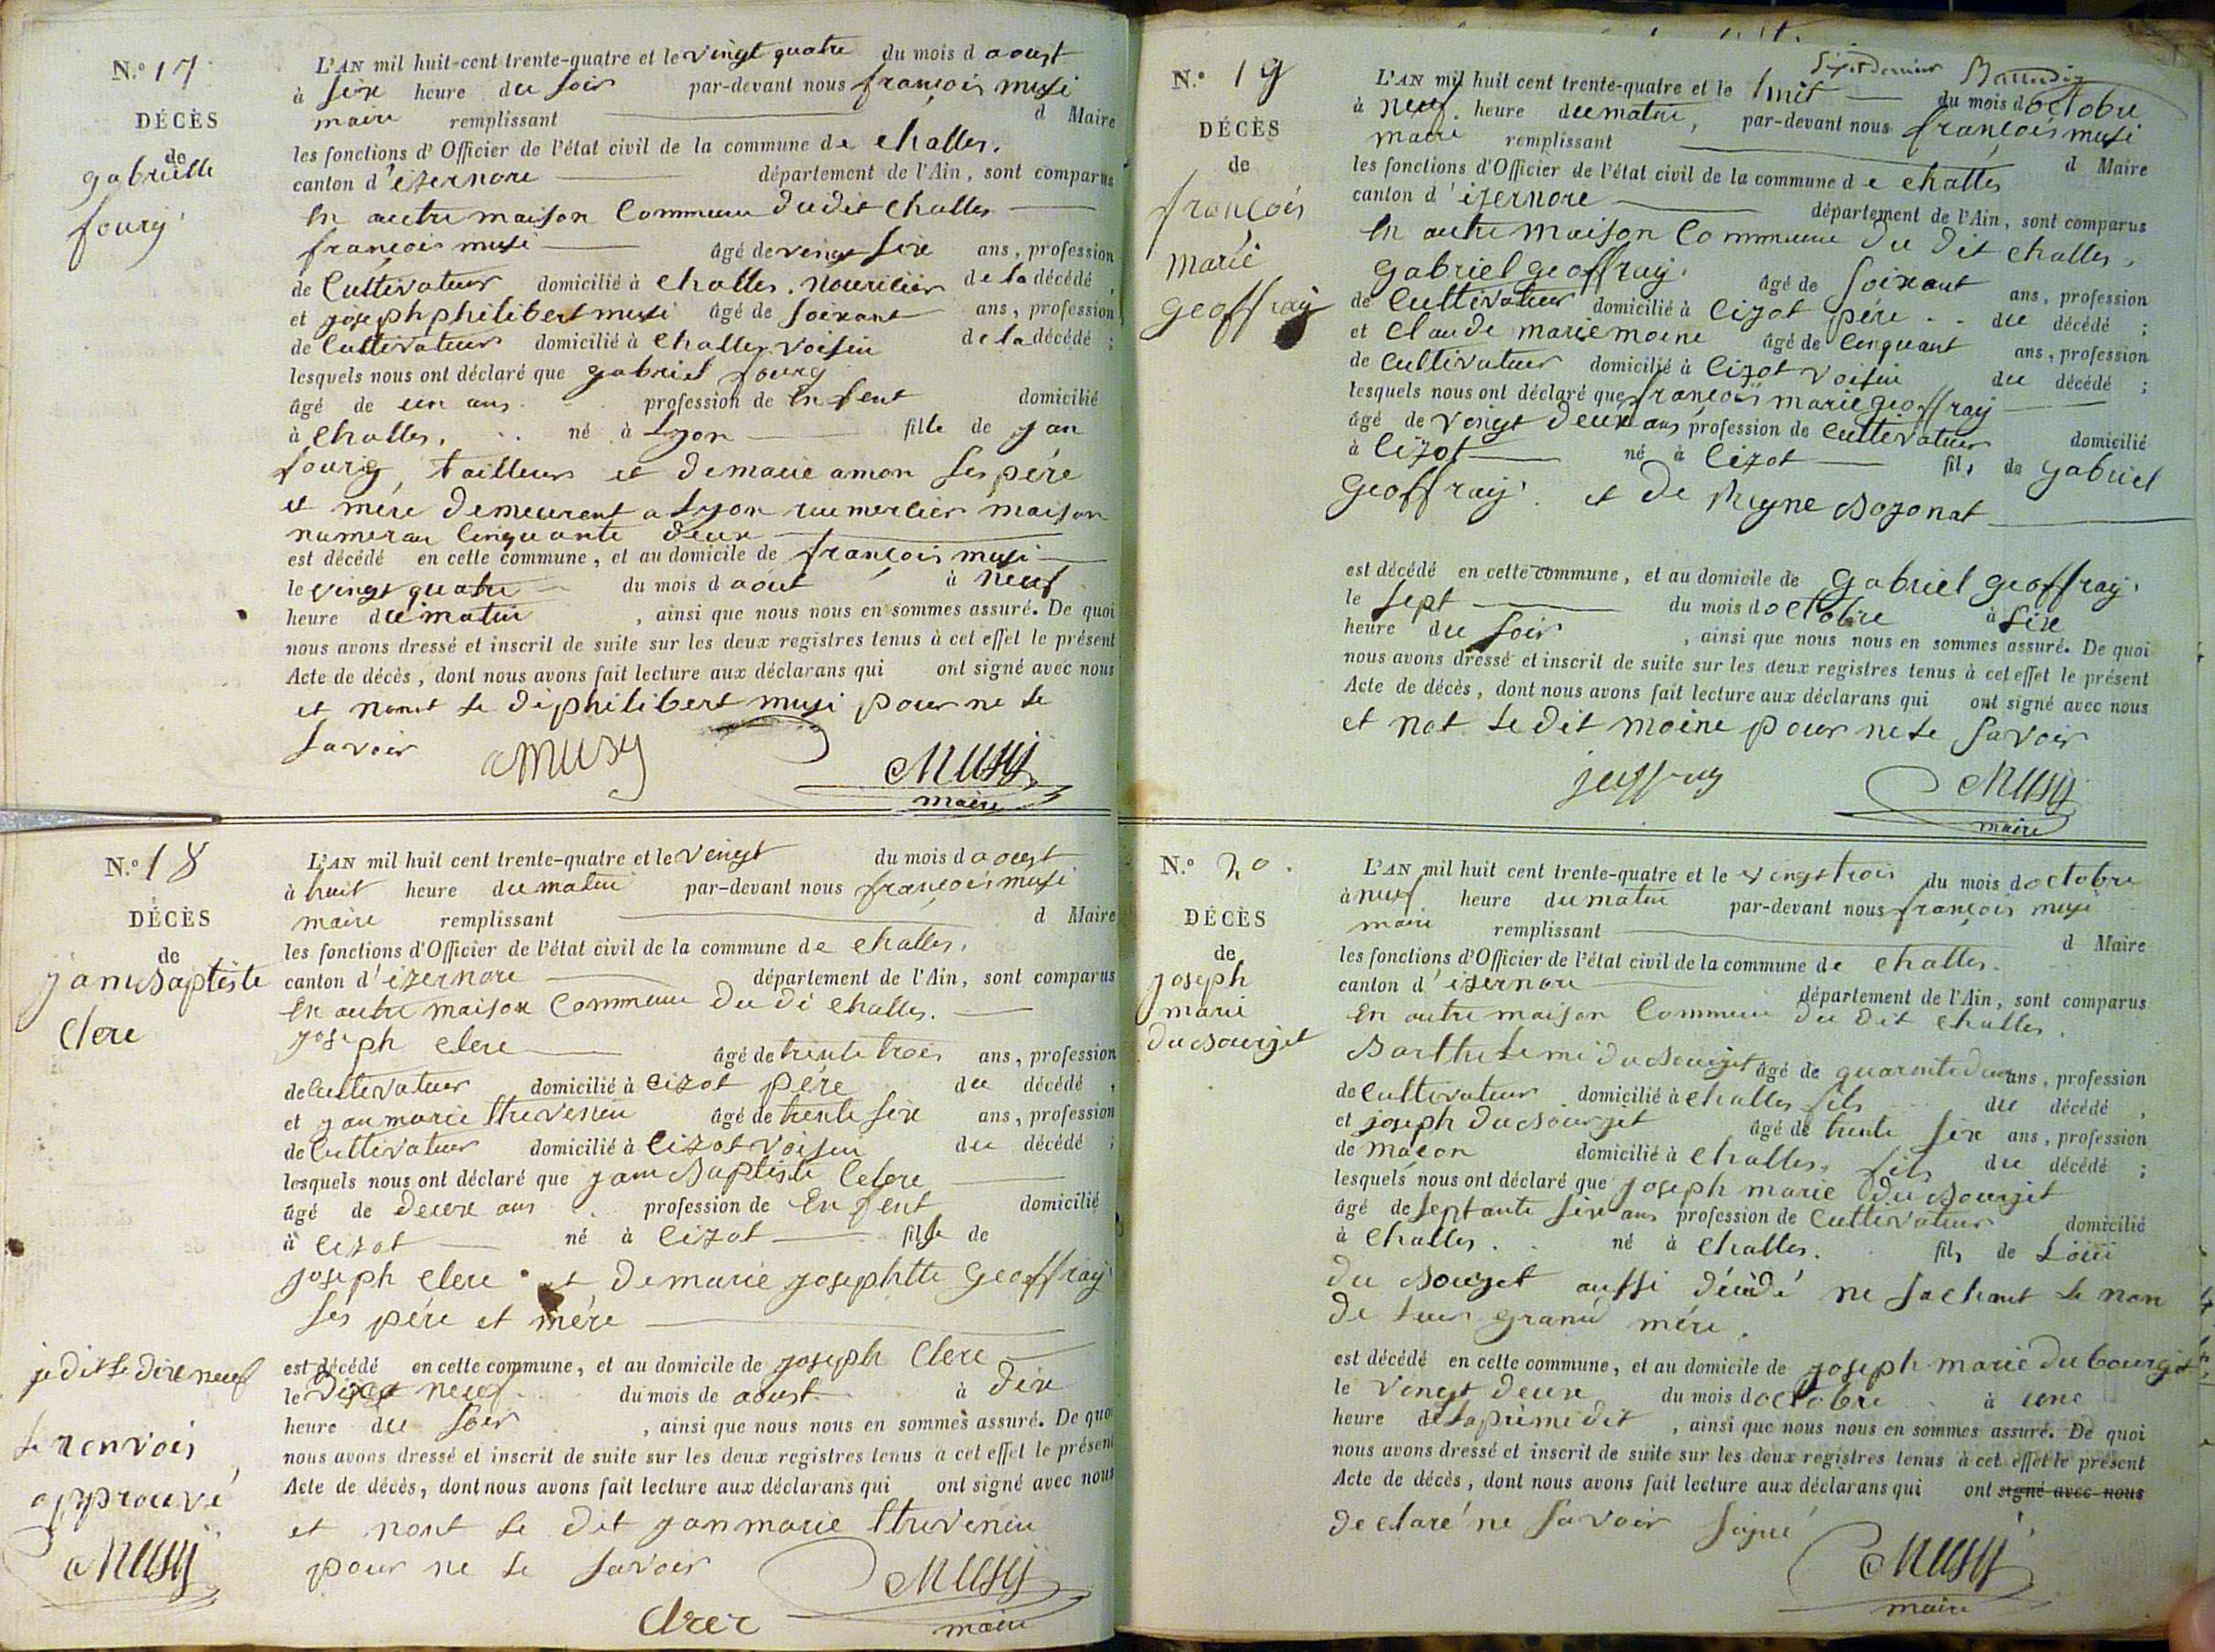 N.° 17
DÉCÈS
de
gabrielle
fourg
L'AN mil huit-cent trente-quatre et le vingt quatre du mois d aoust
à six heure du soir par-devant nous françois musi
maire remplissant d Maire
les fonctions d'Officier de l'état civil de la commune de challes.
canton d'izernore département de l'Ain, sont comparus
En autre maison Commune dudit challes
françois musi âgé de vingt six ans, profession
de Cultivateur domicilié à challes. nouricier de la décédé,
et joseph philibert musi âgé de soixant ans, profession
de Cultivateur domicilié à challes voisin de la décédé;
lesquels nous ont déclaré que gabriel fourg
âgé de un ans profession de Enfent domicilié
à Challes. né à Lyon fille de jan
fourg, tailleur et de marie amon ses pére
et mére demeurent a Lyon rue mercier maison
numerau Cinquante deux
est décédé en cette commune, et au domicile de françois musi
le vingt quatre du mois d aout à neuf
heure du matin, ainsi que nous nous en sommes assuré. De quoi
nous avons dressé et inscrit de suite sur les deux registres tenus à cet effet le présent
Acte de décès, dont nous avons fait lecture aux déclarans qui ont signé avec nous
et nont le di philibert musi pour ne le
savoir Musy Musy
maire
N.° 18
DÉCÈS
de
jan Baptiste
Clere
L'AN mil huit cent trente-quatre et le vingt du mois d aoust
à huit heure du matin par-devant nous françois musi
maire remplissant d Maire
les fonctions d'Officier de l'état civil de la commune de challes.
canton d'izernore département de l'Ain, sont comparus
En autre maison Commune du di challes.
joseph clere âgé de trente trois ans, profession
de Cultivateur domicilié à cizot pére du décédé,
et jan marie thevenin âgé de trente six ans, profession
de Cultivateur domicilié à Cizot voisin du décédé;
lesquels nous ont déclaré que jan Baptiste Celere
âgé de deux ans profession de Enfent domicilié
à cizot né à Cizot fils de
joseph clere et de marie josephtte geoffray
ses pére et mére
je dit le dix neuf
le renvois
approuvé
Musy
est décédé en cette commune, et au domicile de joseph Clere
le neuf du mois de aoust à dix
heure du soir, ainsi que nous nous en sommes assuré. De quoi
nous avons dressé et inscrit de suite sur les deux registres tenus à cet effet le présent
Acte de décès, dont nous avons fait lecture aux déclarans qui ont signé avec nous
et nont le dit jan marie thevenin
pour ne le savoir Musy
Clrer maire
N.° 19
DÉCÈS
de
françois
marie
geoffray
L'AN mil huit cent trente-quatre et le huit du mois d octobre
à neuf heure du matin, par-devant nous françois musi
maire remplissant d Maire
les fonctions d'Officier de l'état civil de la commune de challes
canton d'izernore département de l'Ain, sont comparus
En autre maison Commune du dit challes,
gabriel geoffray. âgé de soixant ans, profession
de Cultivateur domicilié à Cizot pére du décédé;
et Claude marie moine âgé de Cinquant ans, profession
de Cultivateur domicilié à Cizot voisin du décédé;
lesquels nous ont déclaré que françois marie geoffray
âgé de vingt deux ans profession de Cultivateur domicilié
à Cizot né à Cizot fils de gabriel
geoffray. et de Reyne Bozonat
est décédé en cette commune, et au domicile de gabriel geoffray.
le sept du mois d octobre à six
heure du soir, ainsi que nous nous en sommes assuré. De quoi
nous avons dressé et inscrit de suite sur les deux registres tenus à cet effet le présent
Acte de décès, dont nous avons fait lecture aux déclarans qui ont signé avec nous
et not le dit moine pour ne le savoir
jeuffray Musy
maire
N.° 20.
DÉCÈS
de
joseph
marie
du Bourjet
L'AN mil huit cent trente-quatre et le vingt trois du mois d octobre
à neuf heure du matin par-devant nous françois musi
maire remplissant d Maire
les fonctions d'Officier de l'état civil de la commune de challes.
canton d'izernore département de l'Ain, sont comparus
En autre maison Commune du dit challes.
Barthelemi du Bourjet âgé de quarante deux ans, profession
de Cultivateur domicilié à challes fils du décédé,
et joseph du Bourjet âgé de trente six ans, profession
de maçon domicilié à challes, fils du décédé;
lesquels nous ont déclaré que joseph marie du Bourjet
âgé de septante six ans profession de Cultivateur domicilié
à challes. né à challes. fils de Loüi
du Bourjet aussi décédé ne sachant le non
de leur grand mére.
est décédé en cette commune, et au domicile de joseph marie du bourjet
le vingt deux du mois d octobre à une
heure de laprimedit, ainsi que nous nous en sommes assuré. De quoi
nous avons dressé et inscrit de suite sur les deux registres tenus à cet effet le présent
Acte de décès, dont nous avons fait lecture aux déclarans qui ont signé avec nous
declaré ne savoir signé
Musy
maire